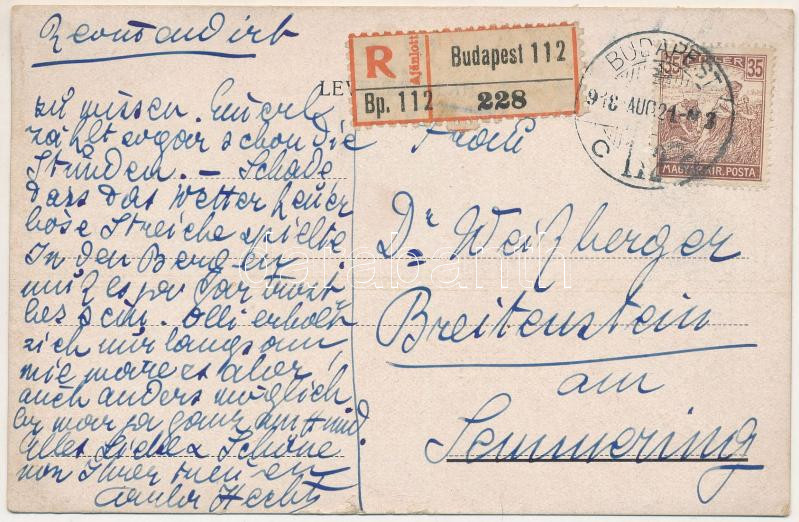 Recomandirt
R
Ajánlott
Budapest 112
Bp. 112
228
BUDAPEST
918 AUG 21
C
112
35
35
MAGYAR KIR. POSTA
LEV
zu wissen. Emerl
zählt sogar schon die
Stunden. — Schade
dass das Wetter heuer
böse Streiche spielte
In den Bergen
muß es ja gar trost
los sein. Olli erholt
sich nur langsam,
wie wäre es aber
auch anders möglich
er war ja ganz am Hund.
Alles Liebe & Schöne
von Ihrer treuen
Hecht
Frau
Dr Weißberger
Breitenstein
am
Semmering
darabanth